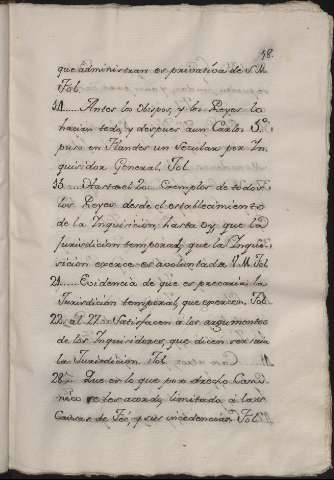 18.
que administran es privativa de S.M
Fol.
Antes los Obispos, y los Reyes lo
hacian todo, y despues aun Carlos 5.º
puso en Flandes un Secular por In-
quisidor General, Fol.
Hasta el 20. Exemplos de todos
los Reyes desde el establecimiento
de la Inquisicion, hasta oy que la
Jurisdicion temporal, que la Inqui-
sicion exerce es a voluntad de V.M. Fol
21. Evidencia de que es precaria la
Jurisdicion temporal, que exercen, Fol.
22. al 27. Satisfacen á los argumentos
de los Inquisidores, que dicen ser suia
la Jurisdicion. Fol.
28. Que en lo que por drecho Cano-
nico se les acordó, limitado á las
Causas de Feé, y sus incidencias Fol.